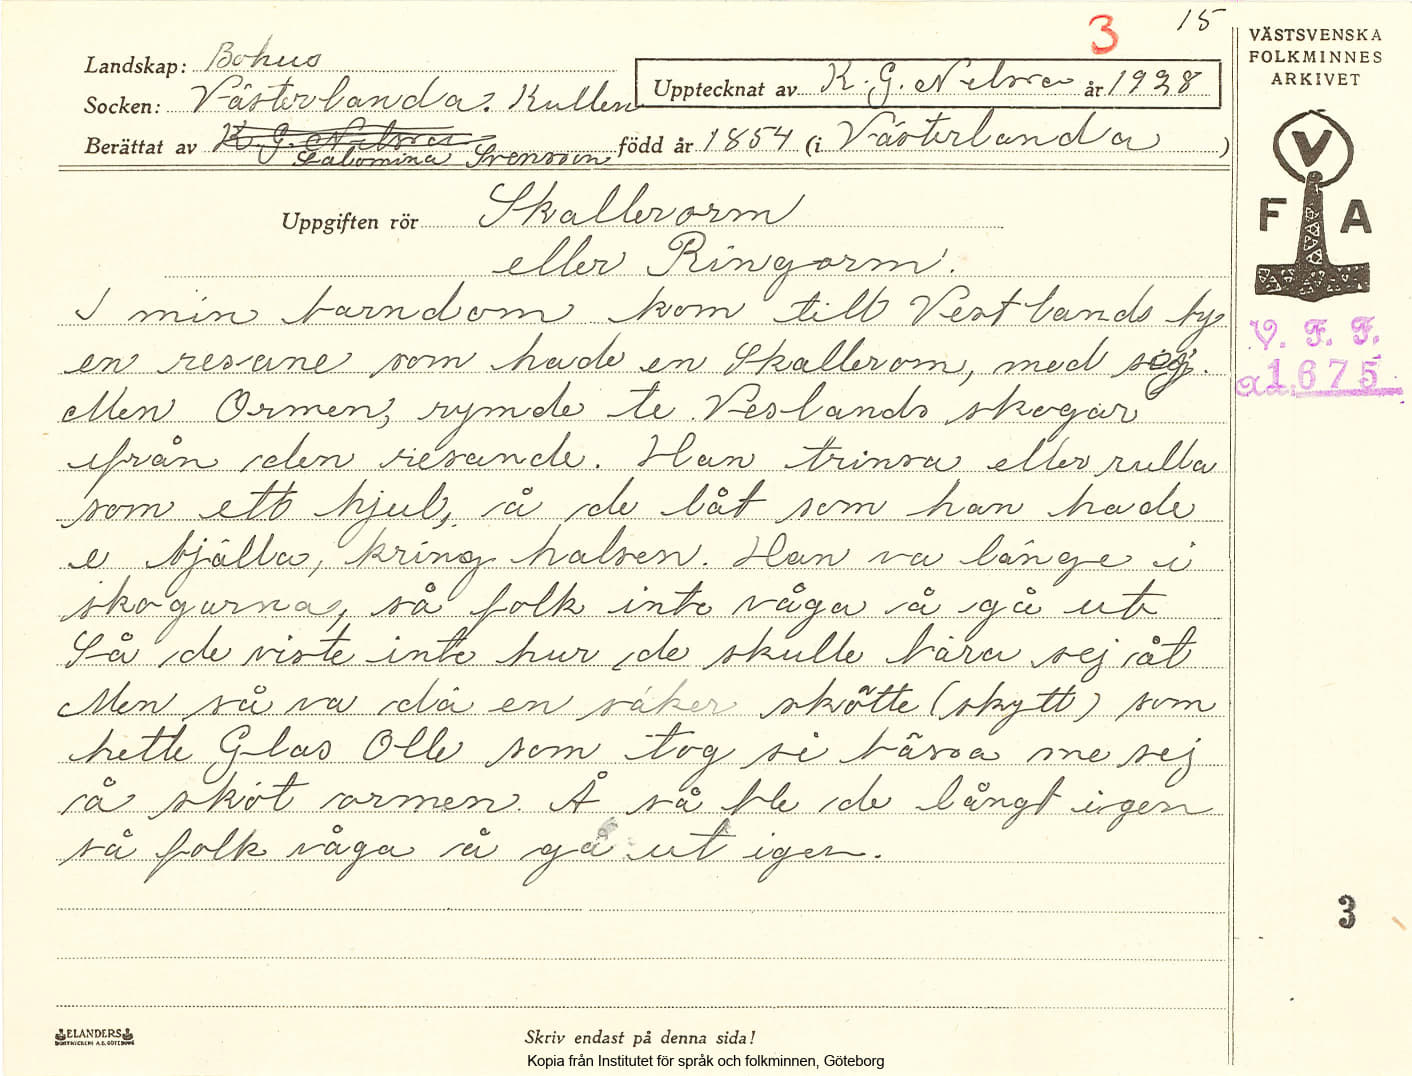 3
15
VÄSTSVENSKA
FOLKMINNES
ARKIVET
Landskap: Bohus
Socken: Västerlanda. Kullen
Upptecknat av K. G. Nelson år 1928
Berättat av K. G. Nelson Salomina Svensson född år 1854 (i Västerlanda)
Uppgiften rör Skallerorm
eller Ringorm.
I min barndom kom till Vestlands by
en resane som hade en Skallerom, med sig.
Men Ormen, rymde te Veslands skogar
ifrån den resande. Han trinsa eller rulla
som ett hjul, å de låt som han hade
e bjälla, kring halsen. Han va länge i
skogarna, så folk inte våga å gå ut
Så de viste inte hur de skulle bära sej åt
Men så va dä en säker skötte (skytt) som
hette Glas Olle som tog si bössa me sej
å sköt ormen. Å så ble de långt igen
så folk våga å gå ut igen.
V
F A
V. F. F.
1675
3
ELANDERS
BOKTRYCKERI A.B. GÖTEBORG
Skriv endast på denna sida!
Kopia från Institutet för språk och folkminnen, Göteborg